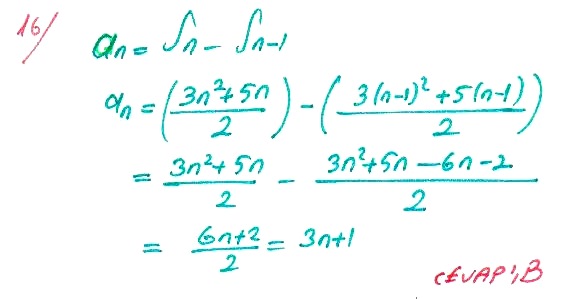 16/ an = Sn - Sn-1
an = (3n²+5n / 2) - (3(n-1)²+5(n-1) / 2)
= 3n²+5n / 2 - 3n²+5n-6n-2 / 2
= 6n+2 / 2 = 3n+1
CEVAP: B